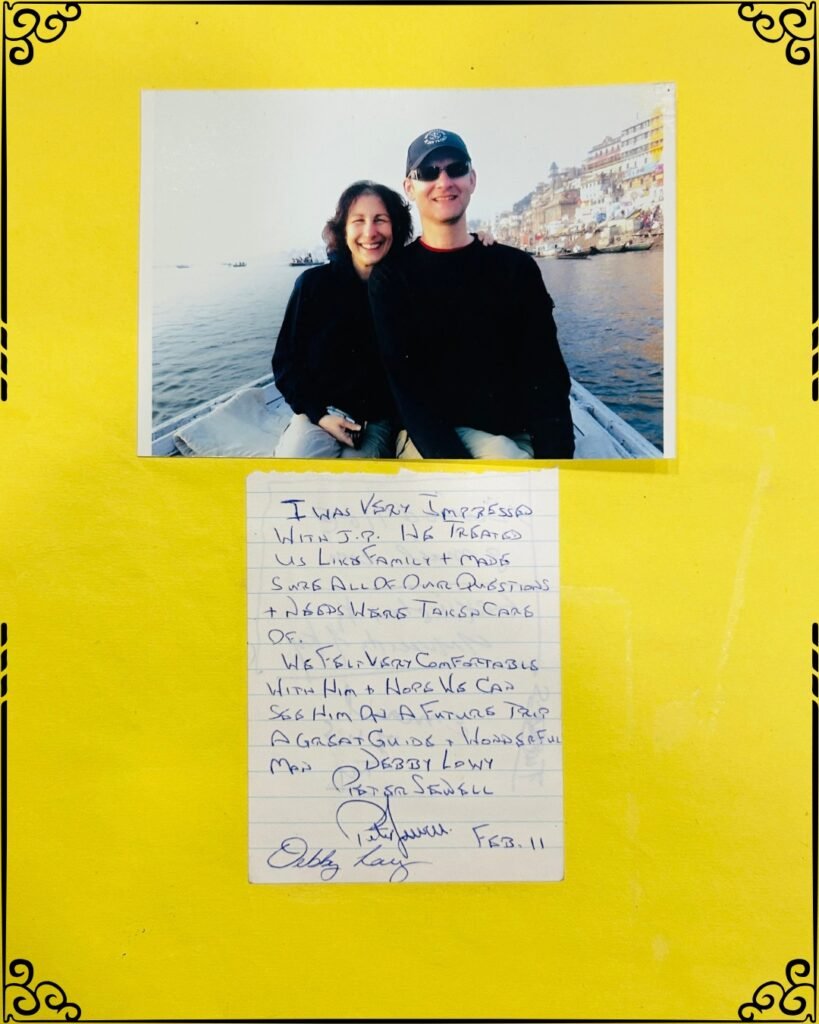 I WAS VERY IMPRESSED
WITH J.P. HE TREATED
US LIKE FAMILY + MADE
SURE ALL OF OUR QUESTIONS
+ NEEDS WERE TAKEN CARE
OF.
WE FELT VERY COMFORTABLE
WITH HIM + HOPE WE CAN
SEE HIM ON A FUTURE TRIP
A GREAT GUIDE + WONDERFUL
MAN DEBBY LOWY
PIETER SEWELL
FEB. 11
Debby